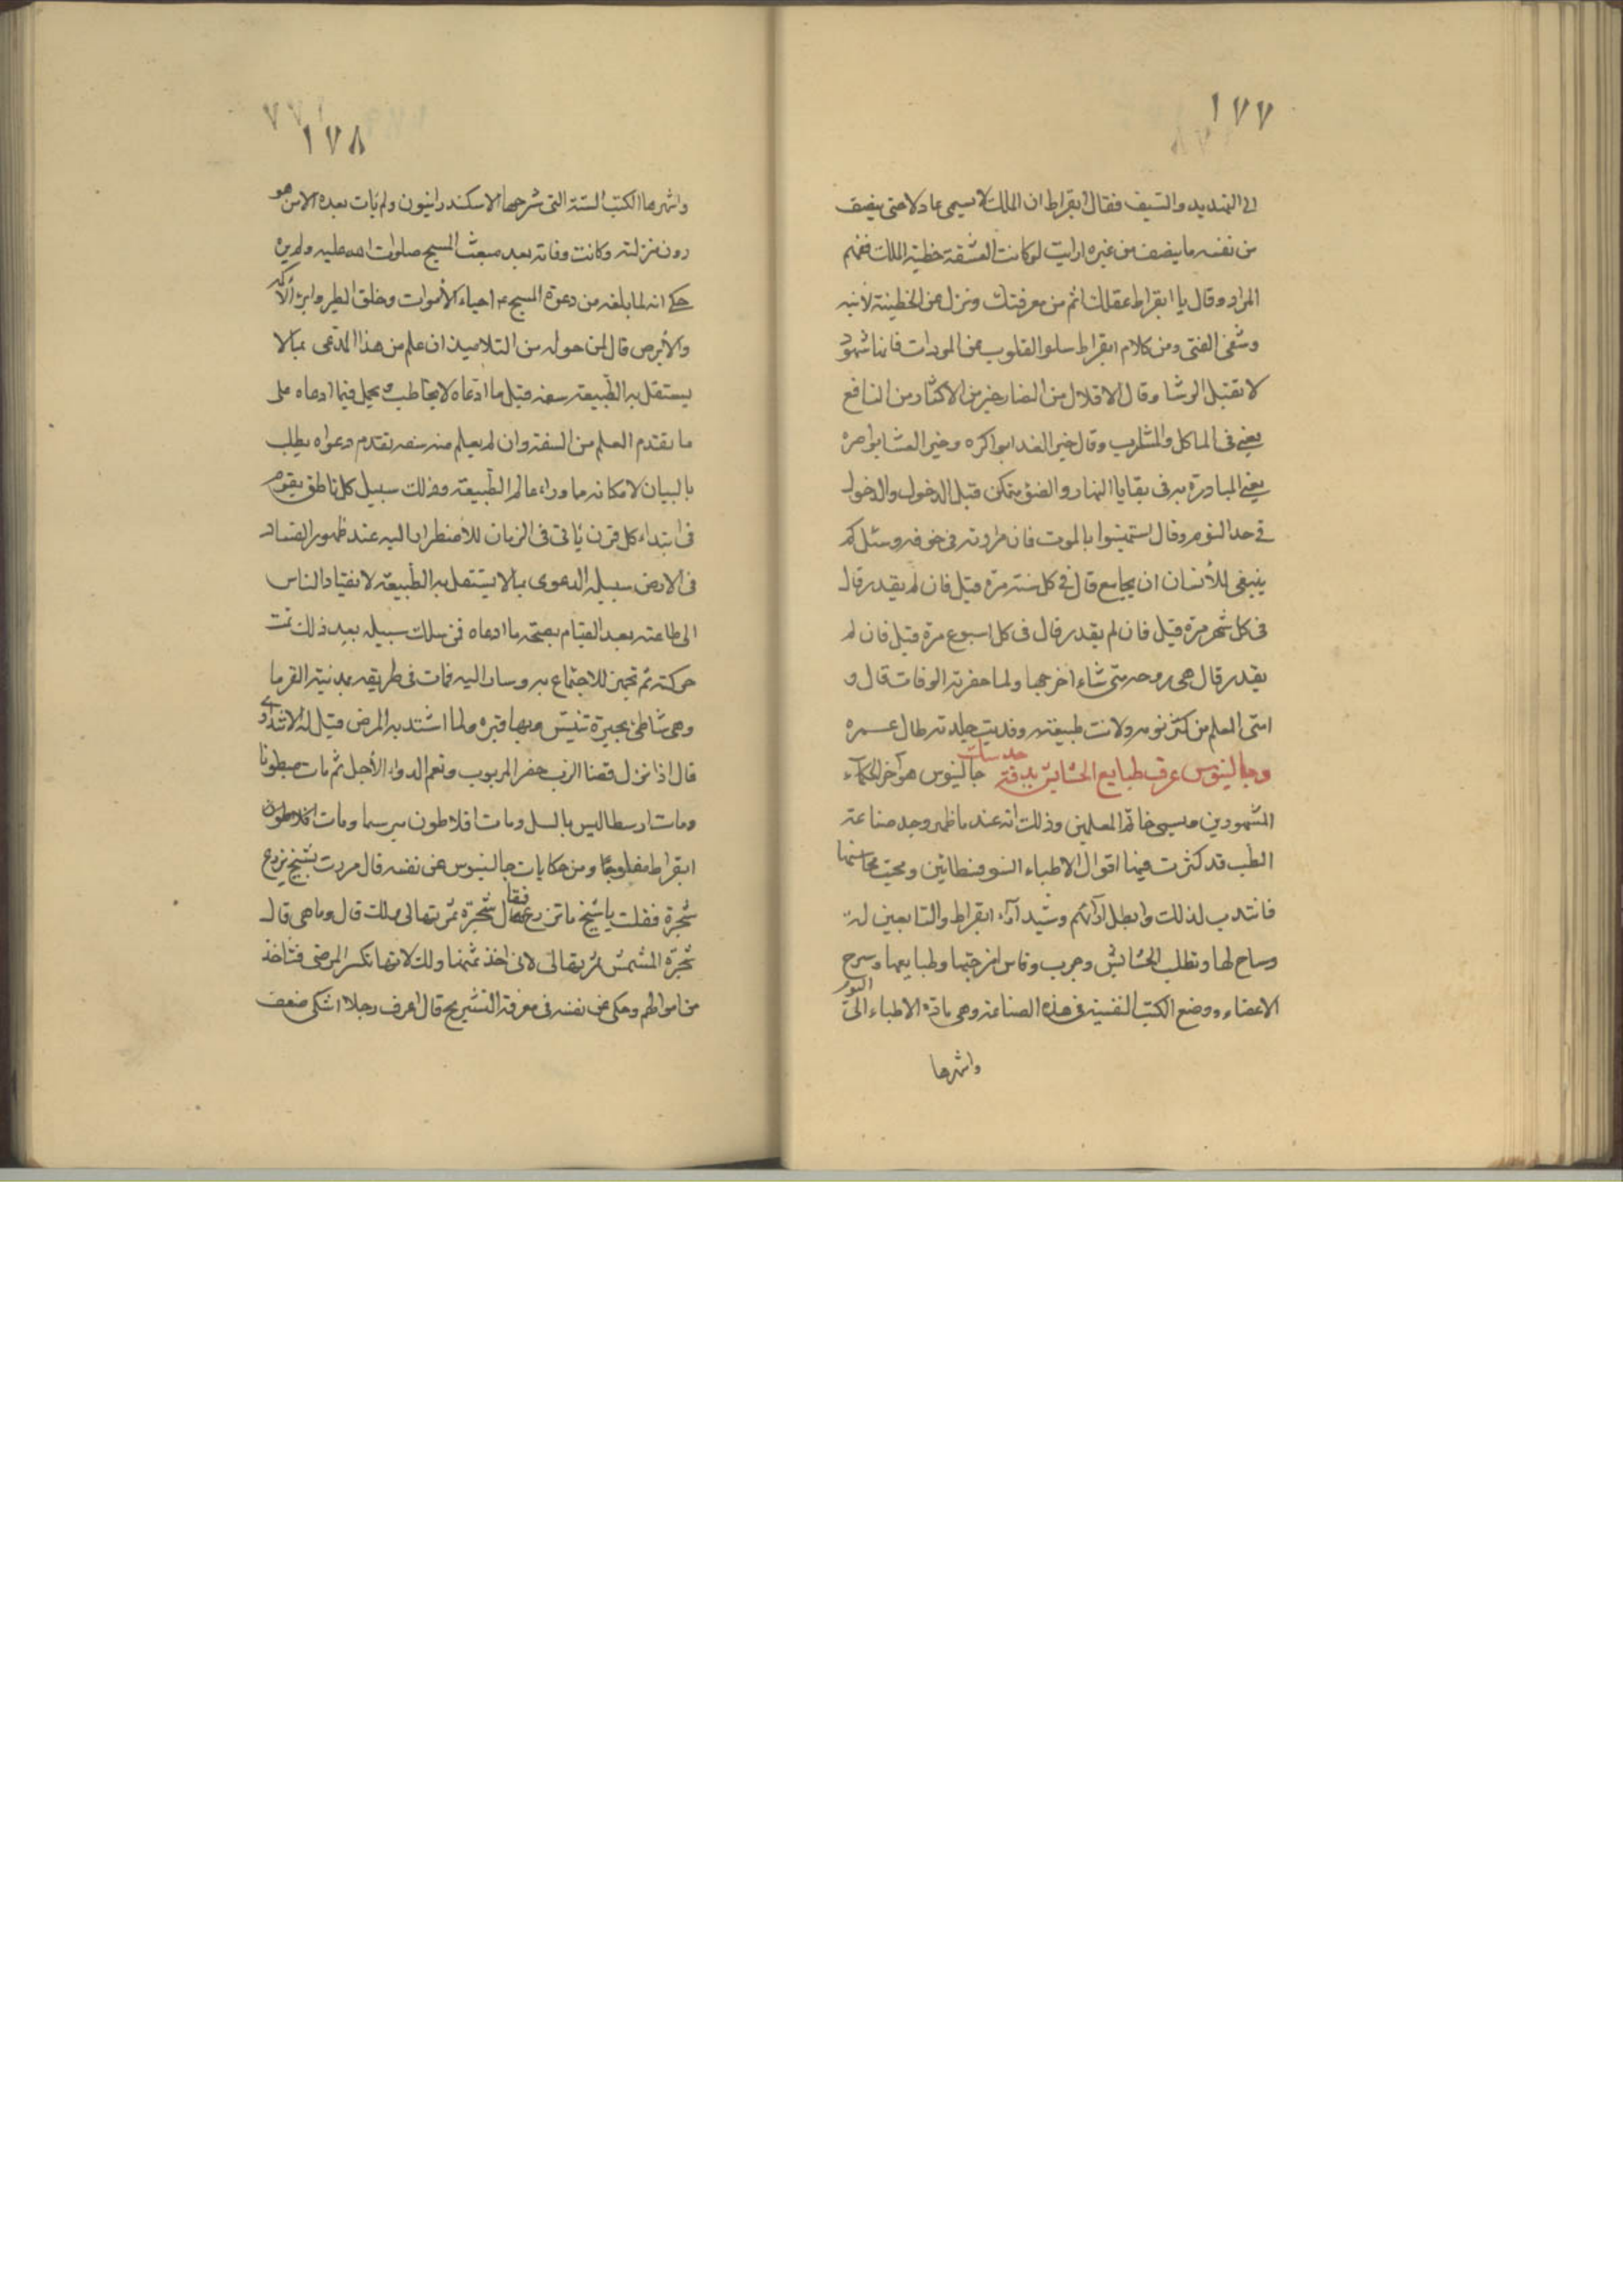 ١٧٧
الى التهديد والسيف فقال ابقراط ان الملك لا يسمى عادلا حتى ينصف
من نفسه ما ينصف من غيره ارايت لو كانت العشقة خطية الملك ففهم
المراد وقال يا ابقراط عقلك اتم من معرفتك ونزل عن الخطيئة لابنه
وشفى الفتى ومن كلام ابقراط سلوا القلوب عن المودات فانها شهود
لا تقبل الرشا وقال الاقلال من الضار خير من الاكثار من النافع
يعنى فى الماكل والمشارب وقال خير الغدا بواكره وخير العشا بواصره
يعنى المبادرة به فى بقايا النهار والضؤ متمكن قبل الدخول والدخول
فى حد النوم وقال استهينوا بالموت فان مرارته فى خوفه وسئل كم
ينبغى للأنسان ان يجامع قال فى كل سنة مرة قيل فان لم يقدر قال
فى كل شهر مرة قيل فان لم يقدر قال فى كل اسبوع مرة قيل فان لم
يقدر قال هى روحه متى شاء اخرجها ولما حضرته الوفات قال و
العلم من كثر نومه ولانت طبيعته ونديت جلدته طال عمره
وجالينوس عرف طبايع الحشايش بدقة حدسات جالينوس هو آخر الحكماء
المشهورين ويسمى خاتم المعلمين وذلك انه عند ما ظهر وجد صناعة
الطب قد كثرت فيها اقوال الاطباء السوفسطائين ومحيت محاسنها
فانتدب لذلك وابطل آرائهم وشيد آراء ابقراط والتابعين له
وساح لها وتطلب الحشائش وجرب وقاس امزجتها وطبايعها وسرح
الاعضاء ووضع الكتب النفيسة فى هذه الصناعة وهى مادة الاطباء الى اليوم
واشهرها
١٧٨
واشهرها الكتب الستة التى شرحها الاسكندرانيون ولم يات بعده الا من هو
دون منزلته وكانت وفاته بعد مبعث المسيح صلوات الله عليه ولم يره
حكى انه لما بلغه من دعوة المسيح ع احياء الأموات وخلق الطير وابراء الأكمه
والأبرص قال لمن حوله من التلاميذ ان علم من هذا المدعى بما لا
يستقل به الطبيعة سفه قبل ما ادعاه لا يخاطب ويحمل فيما ادعاه على
ما تقدم العلم من السفه وان لم يعلم منه سفه تقدم دعواه يطلب
بالبيان لامكانه ما وراء عالم الطبيعة وذلك سبيل كل ناطق يقوم
فى ابتداء كل قرن يأتى فى الزمان للأضطرار اليه عند ظهور الفساد
فى الارض سبيله الدعوى بما لا يستقل به الطبيعة لانقياد الناس
الى طاعته بعد القيام بصحة ما ادعاه فمن سلك سبيله بعد ذلك تمت
حركته ثم تجهز للاجتماع به وسار اليه فمات فى طريقه بمدينة الفرما
وهى شاطئ بحيرة تنيس وبها قبره ولما اشتد به المرض قيل له الا تتداوى
قال اذا نزل قضا الرب حفر المربوب ونعم الدواء الأجل ثم مات مبطونا
ومات ارسطاليس بالسل ومات افلاطون مبرسما ومات
ابقراط مفلوجا ومن حكايات جالينوس عن نفسه قال مررت بشيخ يزرع
شجرة فقلت يا شيخ ما تزرع فقال شجرة ثمرتها لى ولك قال وما هى قال
شجرة المشمش ثمرتها لى لانى اخذ ثمنها ولك لانها تكسر المرضى فتاخذ
من اموالهم وحكى عن نفسه فى معرفة التشريح قال اعرف رجلا اشتكى ضعف